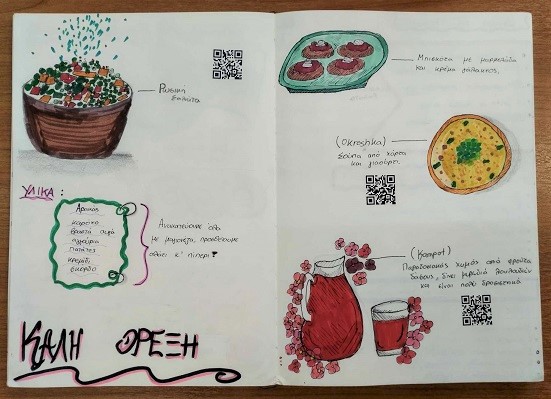 Ρωσική
Σαλάτα
ΥΛΙΚΑ:
Αρακάς
καρότα
βραστά αυγά
αγγούρια
πατάτες
κρεμύδι
Ανακατεύουμε όλα
με μαγιονέζα, προσθέτουμε
αλάτι κ' πιπέρι!
ΚΑΛΗ ΟΡΕΞΗ
Μπισκότα με μαρμελάδα
και κρέμα γάλακτος.
(Okroshka)
Σούπα από χόρτα
και γιαούρτι
(Kompot)
Παραδοσιακός χυμός από φρούτα
δάσους, δίνει μυρωδιά λουλουδιών
και είναι πολύ δροσιστικό.